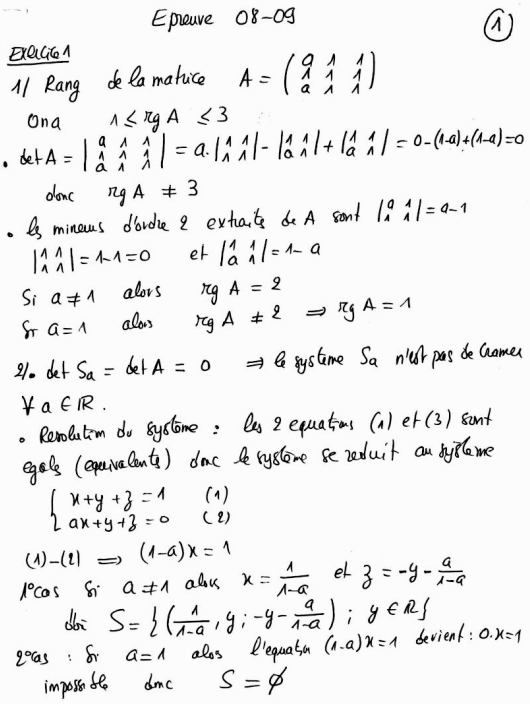 Epreuve 08-09
①
EXERCICE 1
1/ Rang de la matrice A = ( a 1 1 / 1 1 1 / a 1 1 )
On a 1 ≤ rg A ≤ 3
• det A = | a 1 1 / 1 1 1 / a 1 1 | = a. | 1 1 / 1 1 | - | 1 1 / a 1 | + | 1 1 / a 1 | = 0-(1-a)+(1-a)=0
donc rg A ≠ 3
• les mineurs d'ordre 2 extraits de A sont | a 1 / 1 1 | = a-1
| 1 1 / 1 1 | = 1-1=0 et | 1 1 / a 1 | = 1-a
Si a ≠ 1 alors rg A = 2
Si a = 1 alors rg A ≠ 2 ⇒ rg A = 1
2/. det Sa = det A = 0 ⇒ le système Sa n'est pas de Cramer
∀ a ∈ IR.
• Resolution du système : les 2 equations (1) et (3) sont
egals (equivalents) donc le système se reduit au système
{ x+y+z = 1 (1)
ax+y+z = 0 (2)
(1)-(2) ⇒ (1-a)x = 1
1°cas Si a ≠ 1 alors x = 1/(1-a) et z = -y - a/(1-a)
d'où S = { ( 1/(1-a) , y ; -y - a/(1-a) ) ; y ∈ IR }
2°cas : Si a=1 alos l'equation (1-a)x=1 devient : 0.x=1
impossible donc S = ∅